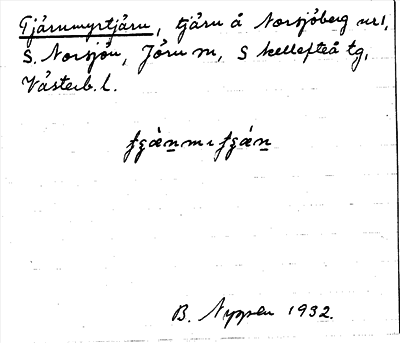 Tjärnmyrtjärn, tjärn å Norsjöberg nr 1,
S. Norsjön, Jörn sn, Skellefteå tg,
Västerb. l.
B. Nyppen 1932.